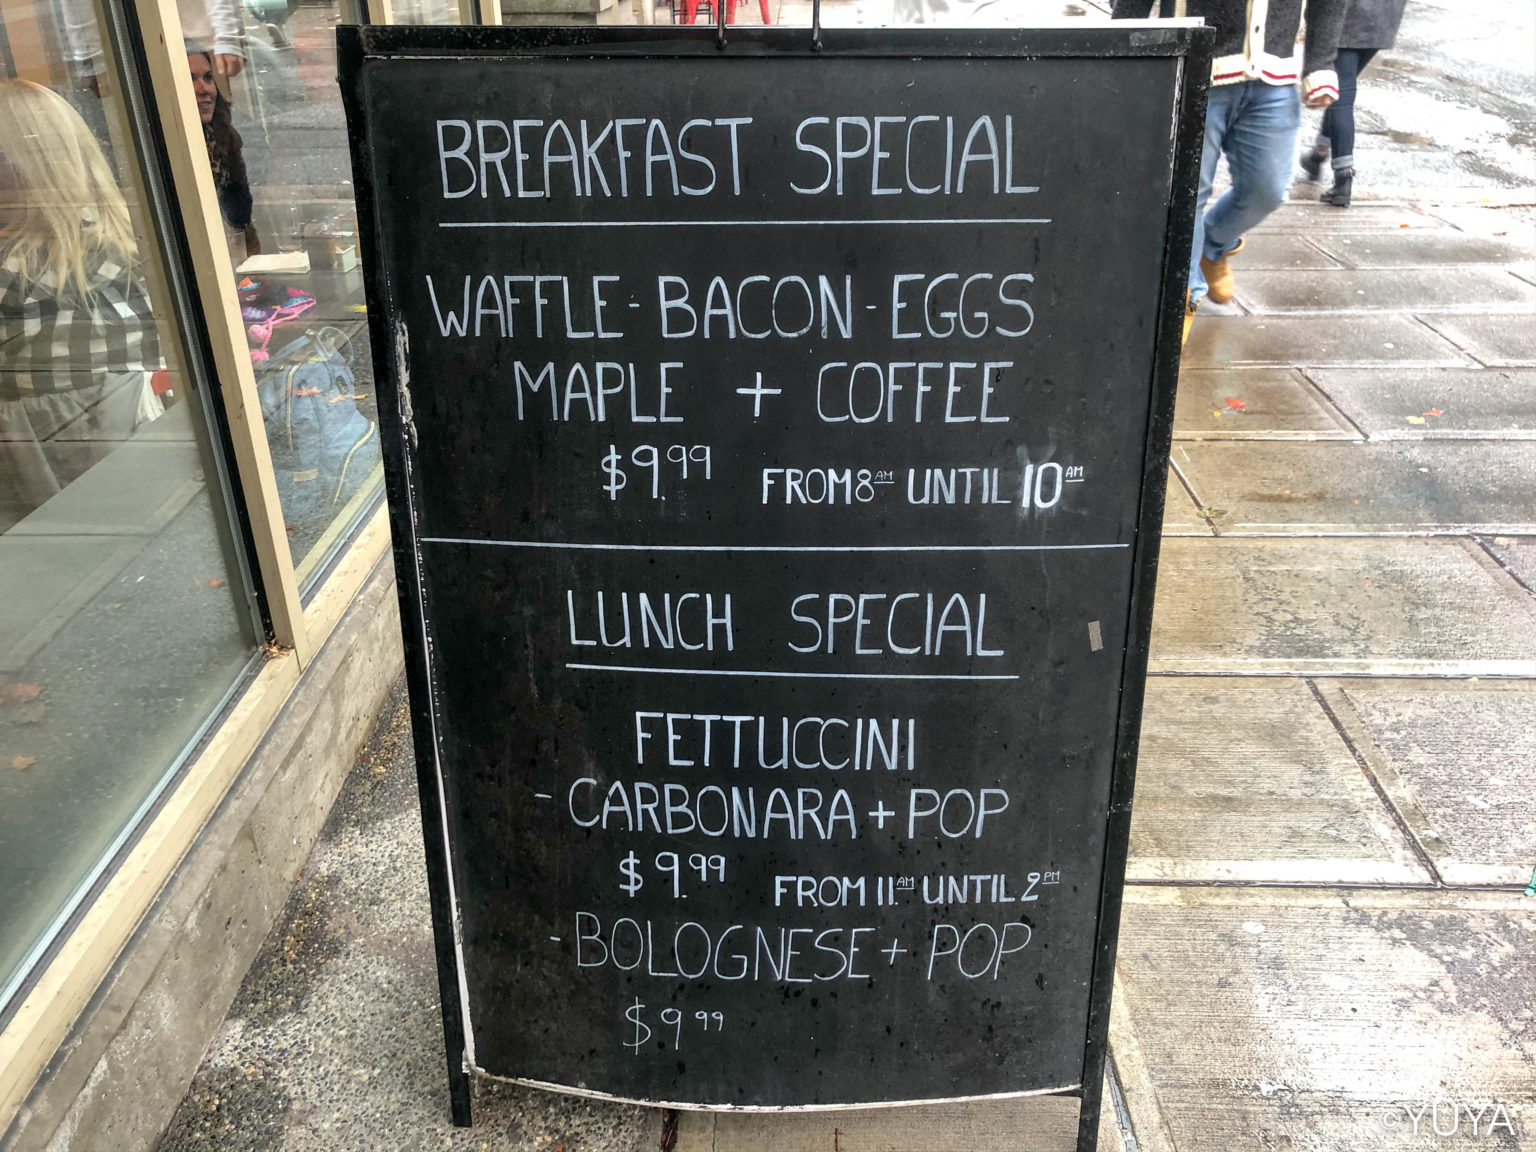 BREAKFAST SPECIAL
WAFFLE - BACON - EGGS
MAPLE + COFFEE
$9.99 FROM 8AM UNTIL 10AM
LUNCH SPECIAL
FETTUCCINI
- CARBONARA + POP
$9.99 FROM 11AM UNTIL 2PM
- BOLOGNESE + POP
$9 99
©YUYA